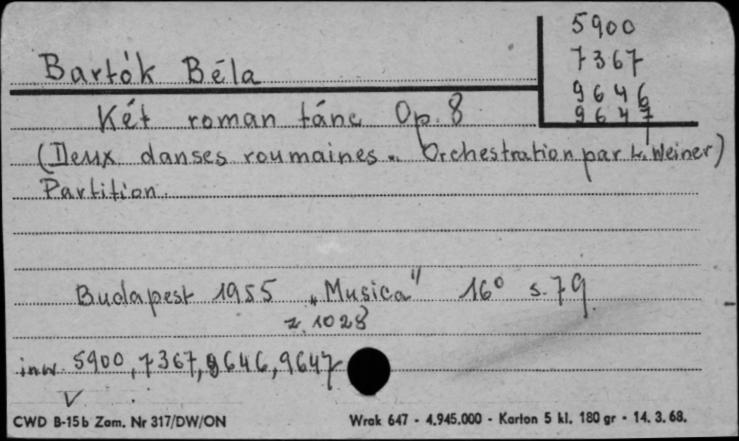 5900
7367
9646
9647
Bartók Béla
Két roman tánc Op. 8
(Deux danses roumaines. Orchestration par L. Weiner)
Partition.
Budapest 1955 „Musica" 16° s. 79
z. 1028
inw. 5900, 7367, 9646, 9647
V
CWD B-15b Zam. Nr 317/DW/ON
Wrak 647 - 4.945.000 - Karton 5 kl. 180 gr - 14. 3. 68.